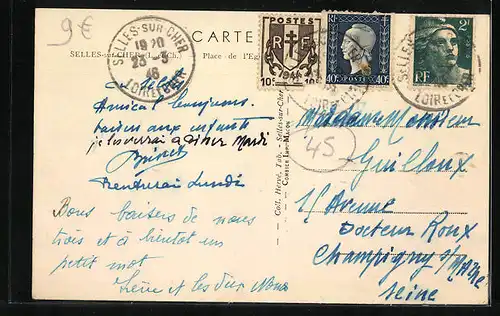 9€
CARTE
SELLES-SUR-CHER (L.-et-Ch.)
Place de l'Ég
SELLES-SUR-CHER
19 20
23-3
46
LOIR-ET-CHER
POSTES
RF
10c
1944
10c
40c
40c
2F
RF
SELLES
LOIR-ET-CHER
Amical bonjour
baisers aux enfants
je t'enverrai a dîner Mardi
Rentrerai Lundi
Bons baisers de nous
trois et à bientôt un
petit mot
et les deux
Coll. Hervé, Tab. - Selles-sur-Cher
Combier Imp. Macon
45
Madame Monsieur
Guilloux
15 Avenue
Docteur Roux
Champigny s/ Marne
Seine